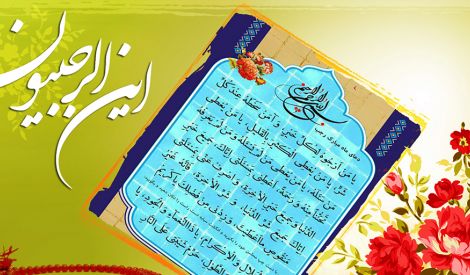 این الرجبیون
بسم الله الرحمن الرحیم
دعای ماه مبارک رجب
یا مَن اَرجُوهُ لِکُلِّ خَیرٍ وَ آمَنُ سَخَطَهُ عِندَ کُلِّ
شَرٍّ یا مَن یُعطِی الکَثیرَ بِالقَلیلِ یا مَن یُعطی
مَن سَئَلَهُ یا مَن یُعطی مَن لَم یَسئَلهُ وَ مَن لَم یَعرِفهُ
تَحَنُّناً مِنهُ وَ رَحمَةً اَعطِنی بِمَسئَلَتی اِیّاکَ جَمیعَ خَیرِ
الدُّنیا وَ جَمیعَ خَیرِ الآخِرَةِ وَ اصرِف عَنّی بِمَسئَلَتی
اِیّاکَ جَمیعَ شَرِّ الدُّنیا وَ شَرِّ الآخِرَةِ فَاِنَّهُ غَیرُ
مَنقُوصٍ ما اَعطَیتَ وَ زِدنی مِن فَضلِکَ یا کَریمُ
لالِ وَ الاِکرامِ یا ذَا النَّعماءِ وَ الجُودِ یا ذَا
الطَّولِ حَرِّم شَیبَتی عَلَی النّارِ